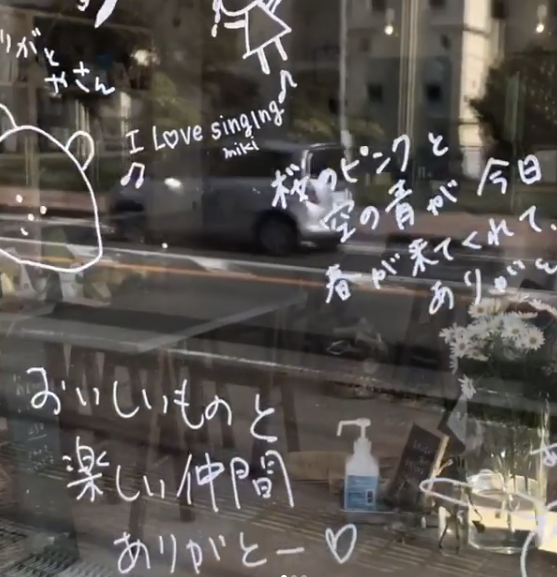 りがと
やさん
I Love singing
miki
桜のピンクと
空の青が 今日
春が来てくれて、
ありがと
おいしいものと
楽しい仲間
ありがとー♡